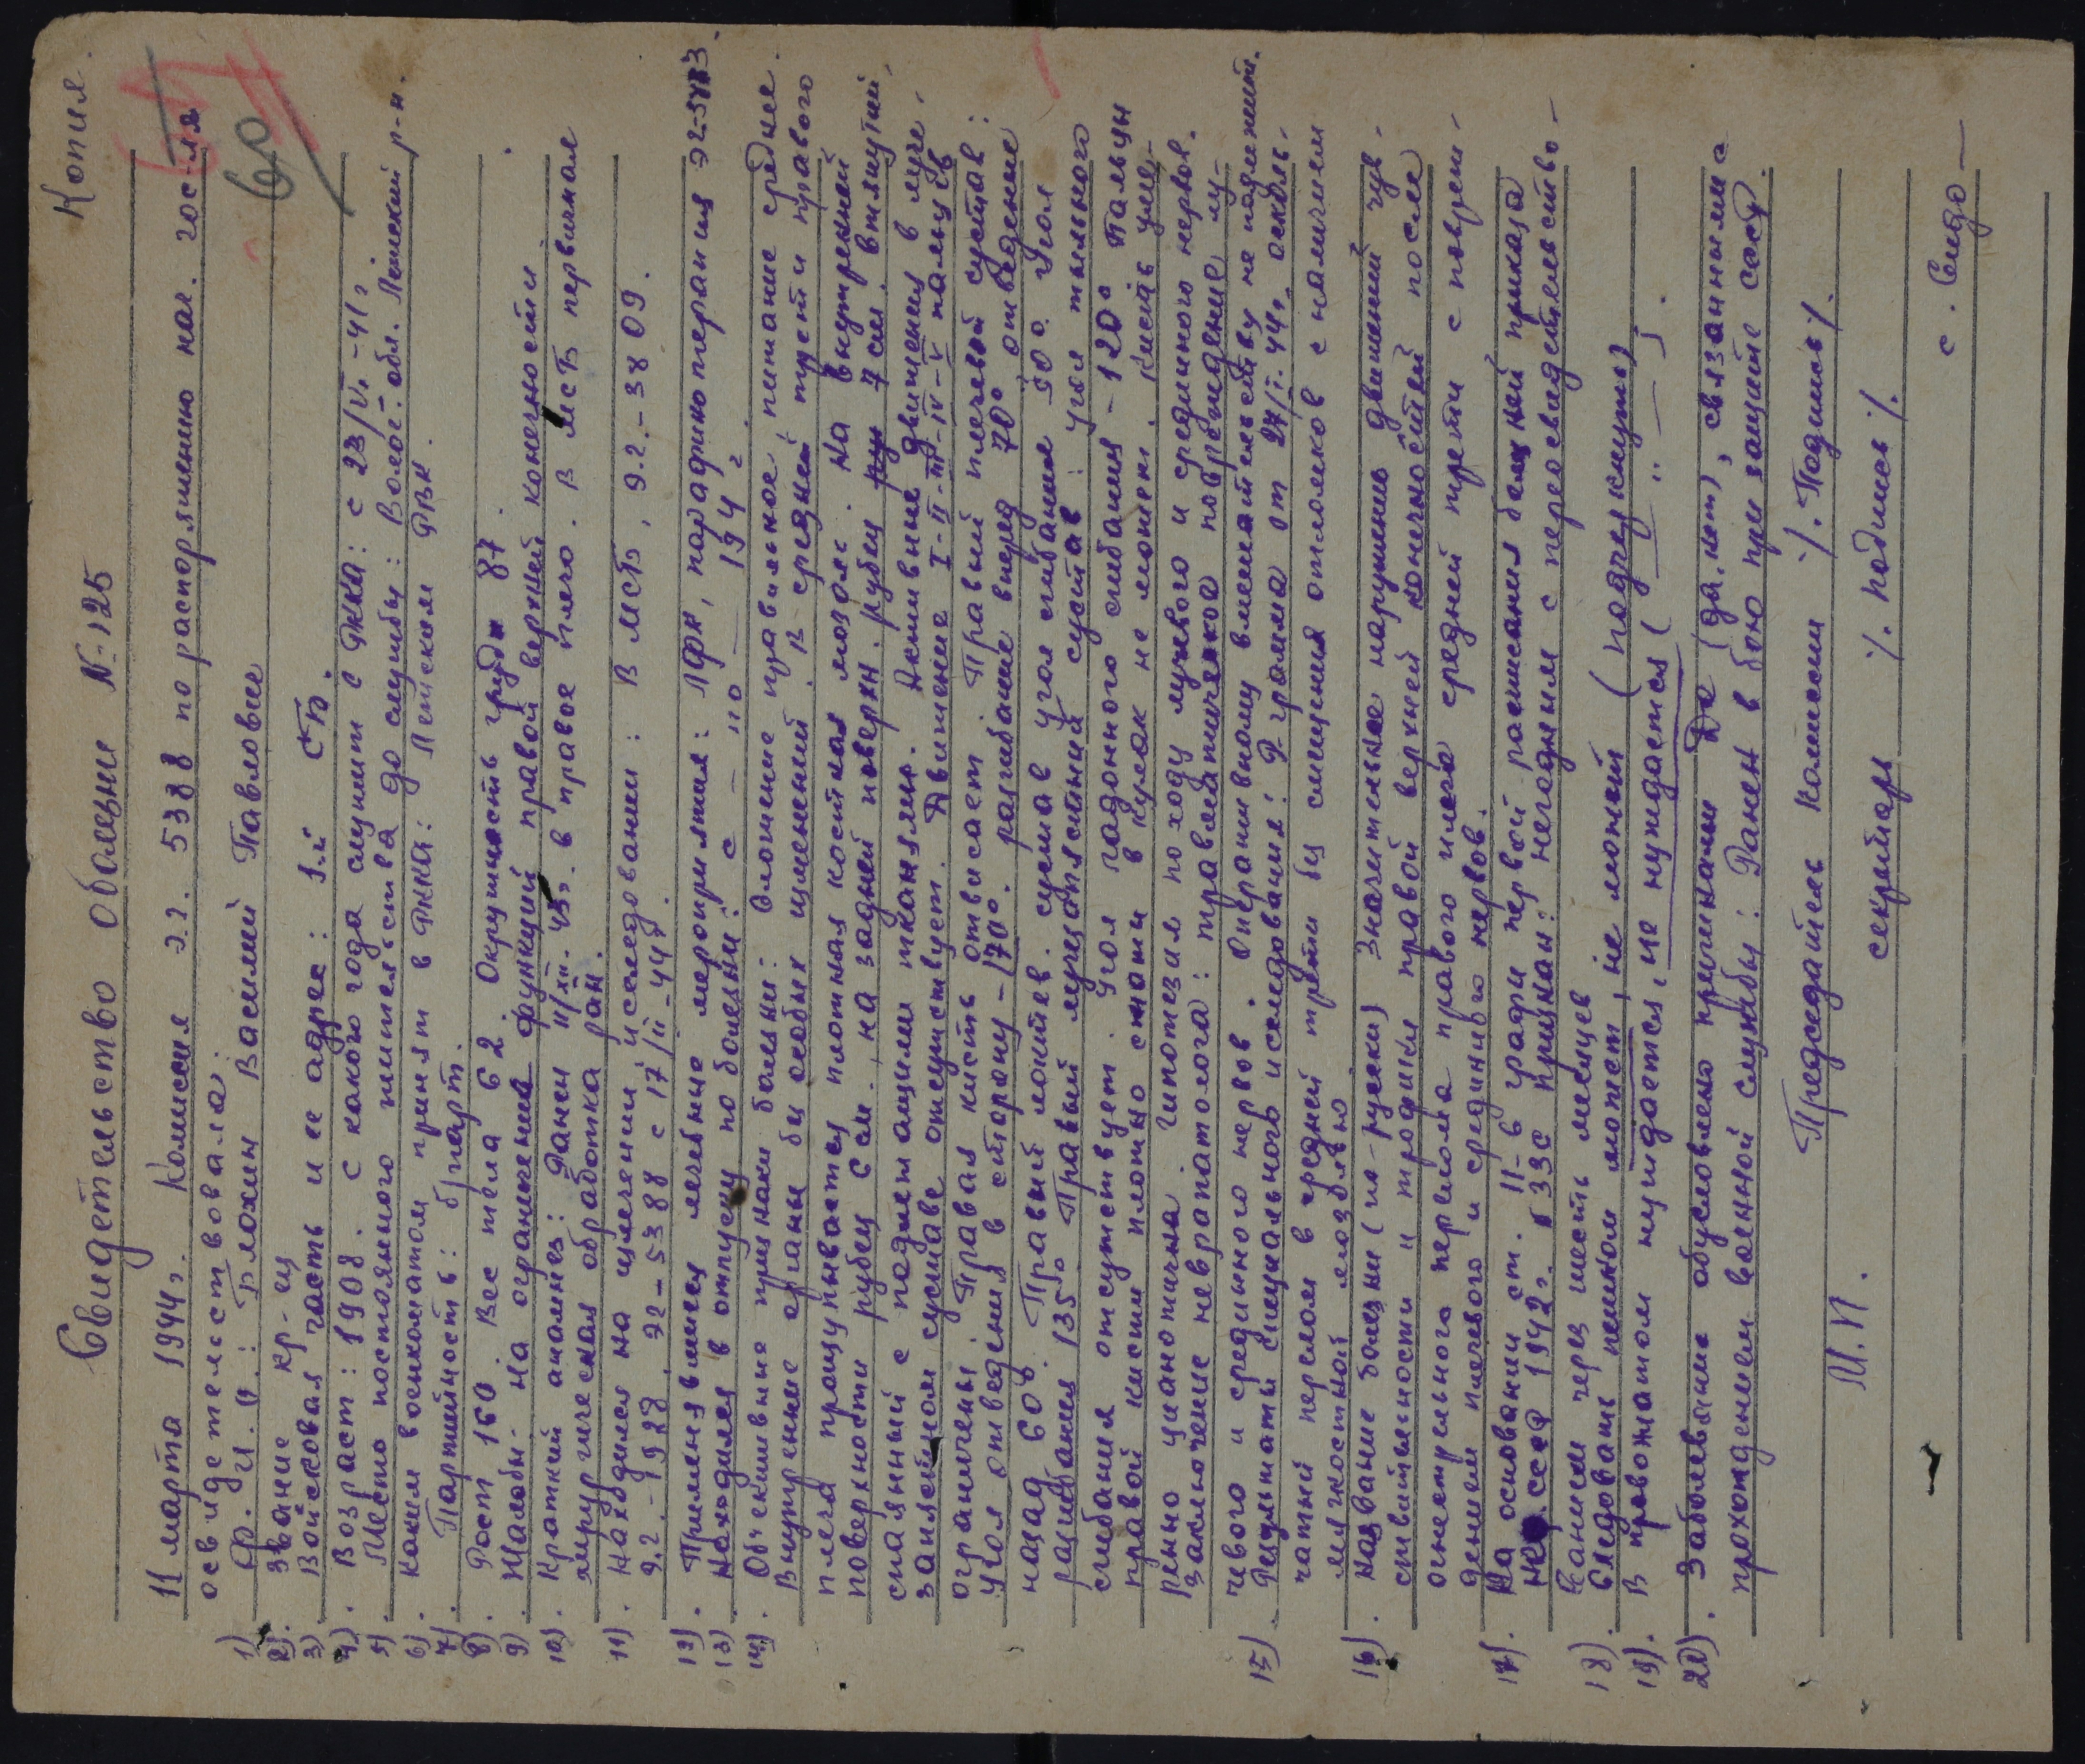 Копия.
60
Свидетельство О болезни №-125
11 марта 1944г. Комиссия э.г. 5388 по распоряжению нач. гос-ля
освидетельствовала:
1) Ф.И.О: Блохин Василий Павлович
2). Звание кр-ец
3) Войсковая часть и ее адрес: 1-й СБ.
4). Возраст: 1908. с какого года служит в РККА: с 23/VI-41г
5) Место постоянного жительства до службы: Волог. обл. Лежский р-н.
6). Каким военкоматом принят в РККА: Лежским РВК.
7) Партийность: б/парт.
8). Рост 160. Вес тела 62. Окружность груди 87.
9). Жалобы- на ограничение функций правой верхней конечности
10). Краткий анамнез: Ранен 11/XII.43г. в правое плечо. В МСБ первичная
хирургическая обработка ран.
11). Находился на излечении и исследовании: В МСБ, Э.Г.-3809.
Э.Г.-1928. ЭГ-5388 с 17/II-44г.
12). Применявшиеся лечебные мероприятия: ЛФК, парафинотерапия ЭГ-5883.
13). Находился в отпуску по болезни: с — по — 194 г
14). Объективные признаки болезни: Сложение правильное, питание среднее.
Внутренние органы без особых изменений. В средней трети правого
плеча прощупывается плотная костная мозоль. На внутренней
поверхности рубец см, на задней поверхн. рубец 7 см. втянутый,
спаянный с подлежащими тканями. Активные движения в луче-
запястном суставе отсутствует. Движение I-II-III-IV-V пальцев
ограничены. Правая кисть отвисает. Правый плечевой сустав:
Угол отведения в сторону-170°. разгибание вперед 70° отведение
назад 60°. Правый локтев. сустав угол сгибания 50°. Угол
разгибания 135° Правый лучезапястный сустав: Угол тыльного
сгибания отсутствует. Угол ладонного сгибания-120° Пальцы
правой кисти плотно сжать в кулак не может. Кисть уме-
ренно цианотична. Гипотезия по ходу лучевого и срединного нервов.
Заключение невропатолога: травматическое повреждение лу-
чевого и срединного нервов. Оперативному вмешательству не подлежит.
15). Результаты специального исследования: Р-грамма от 27/I.44г. оскольч-
чатый перелом в средней трети без смещения отломков с наличием
мягкостной мозолью
16). Название болезни (по-русски) Значительное нарушение движений чув-
ствительности и трофики правой верхней конечностей после
огнестрельного перелома правого плеча средней трети с повреж-
дением плечевого и срединного нервов.
17). На основании ст. 11-б графы первой расписания болезней приказа
НКО СССР 1942г. № 336 признан: негодным с переосвидетельство-
ванием через шесть месяцев
18). Следовать пешком может, не может (подчеркнуть)
19). В провожатом нуждается, не нуждается ( — " — ).
20). Заболевание обусловлено причинами Да (да, нет), связанными с
прохождением военной службы: Ранен в бою при защите ссср.
Председатель Комиссии /. Подпись/.
М.П.
секретарь /. подпись/.